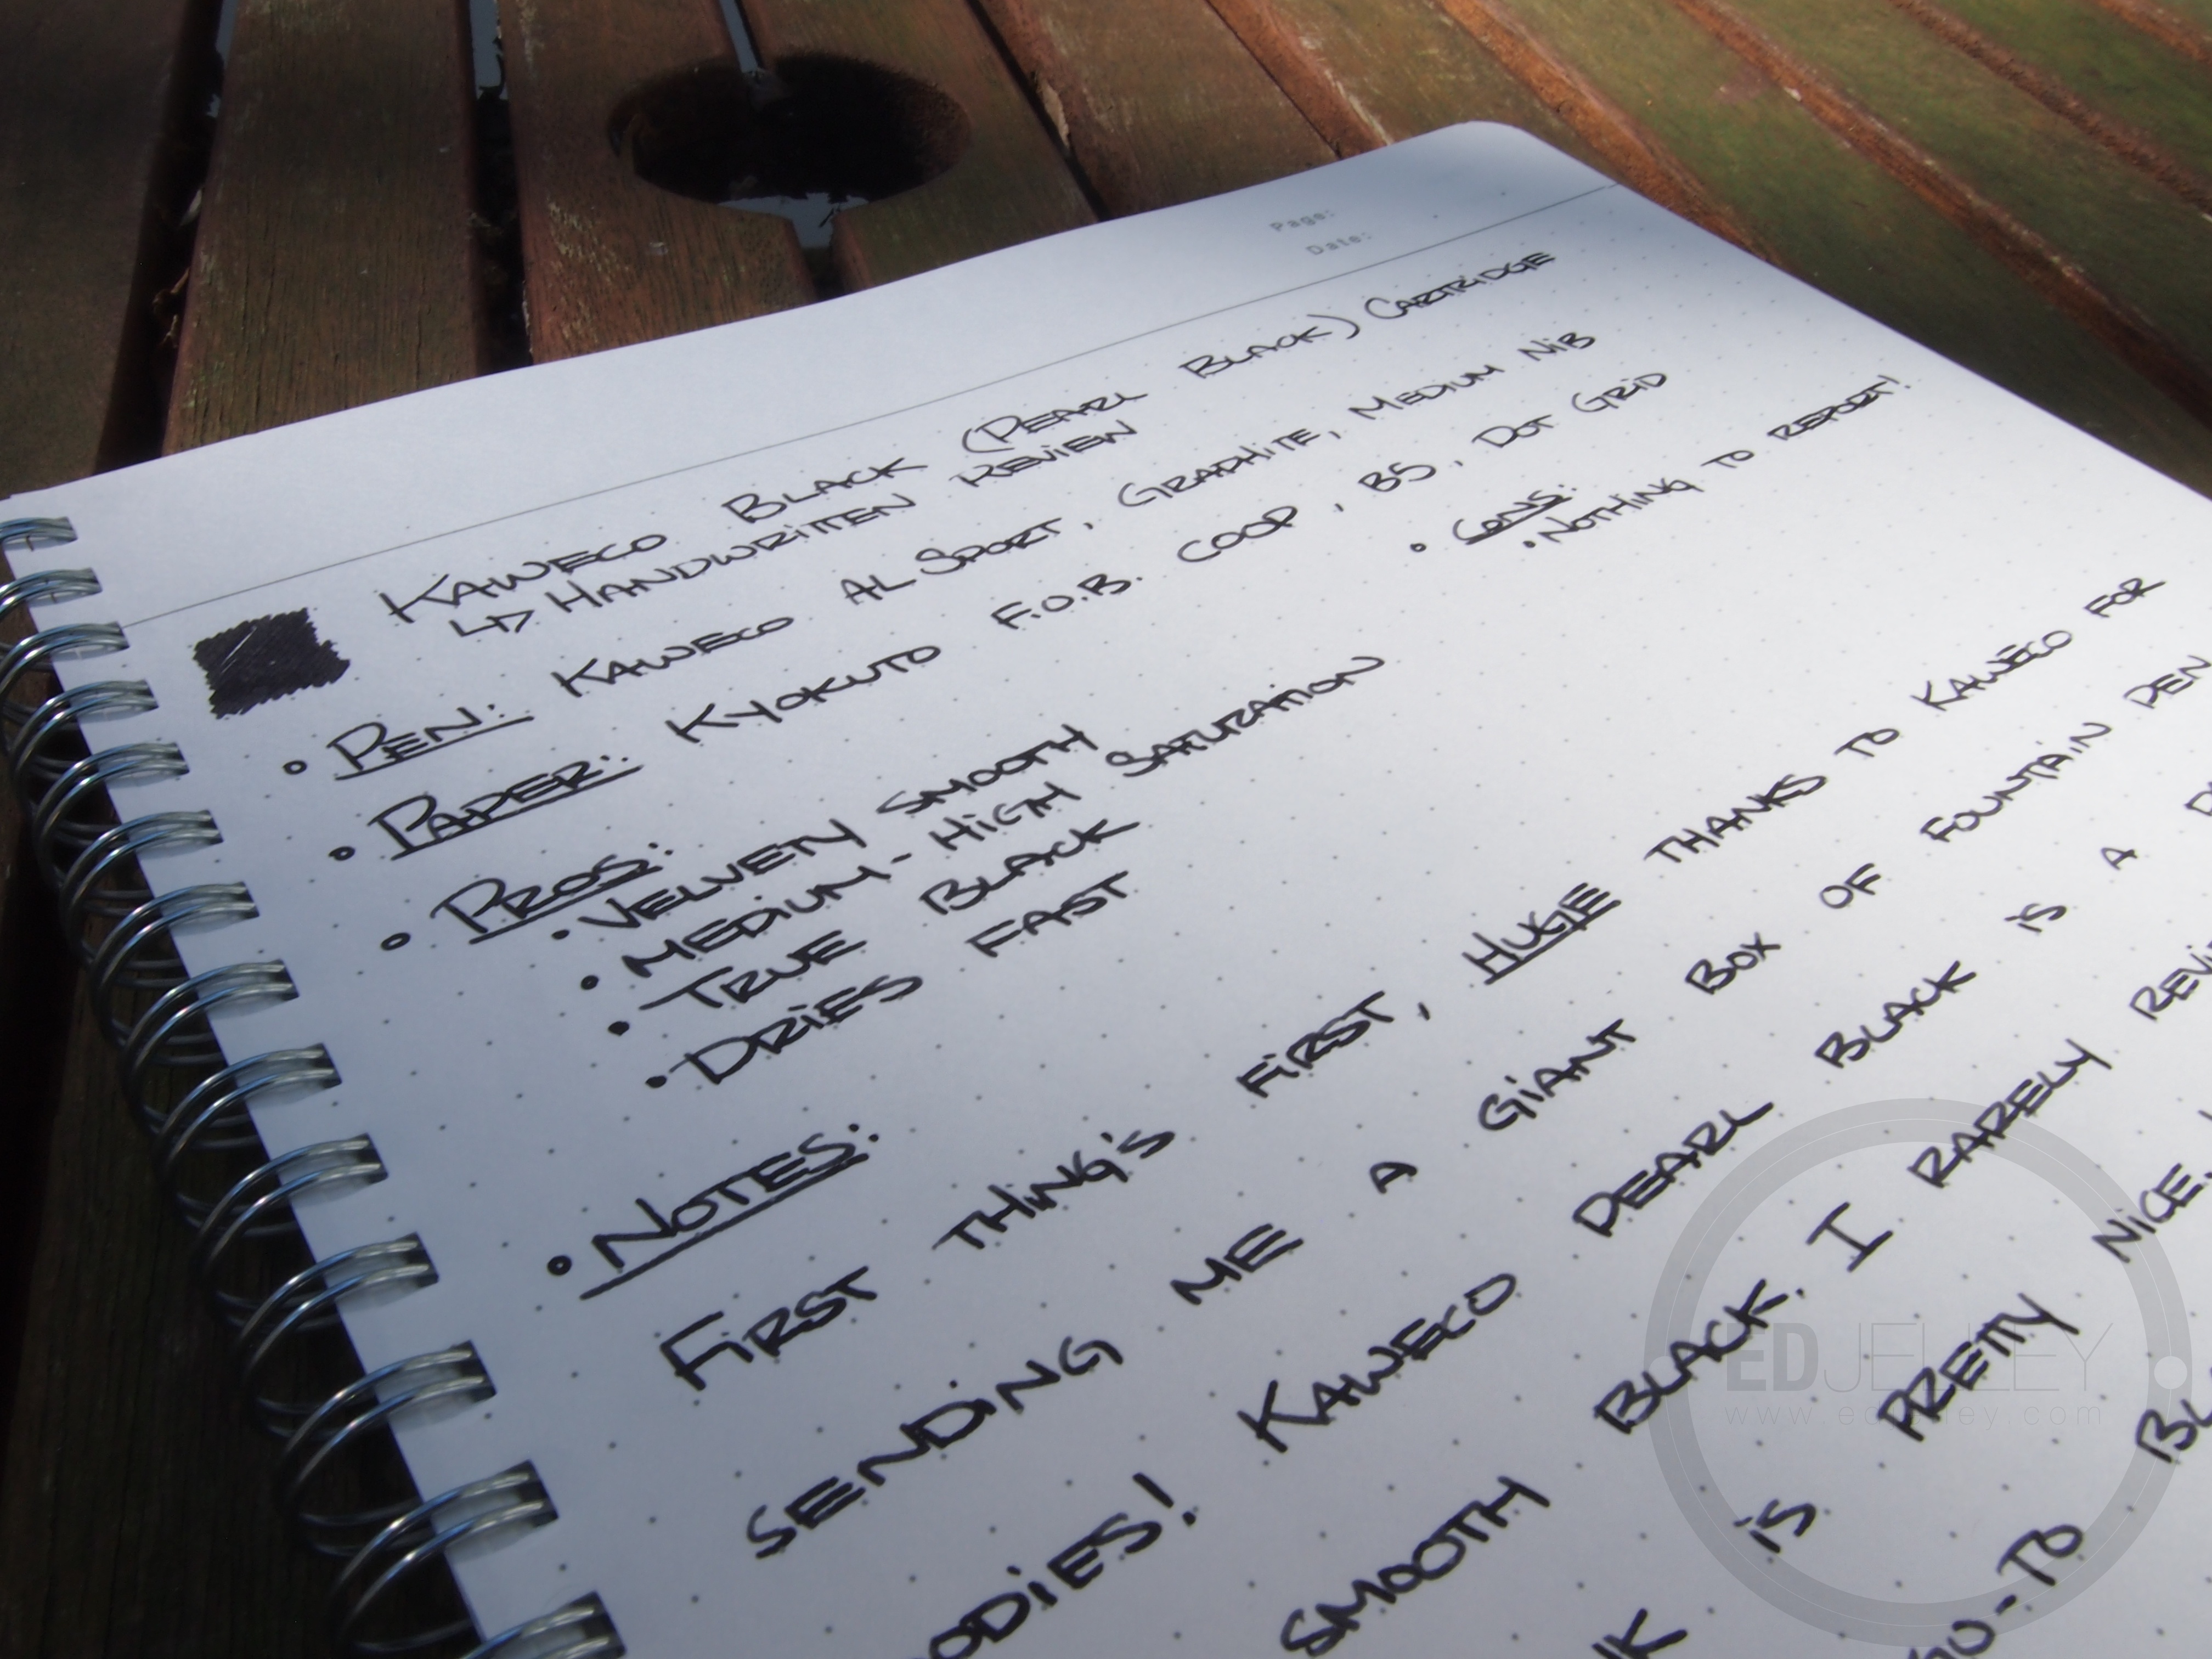 Page:
Date:
KAWECO BLACK (PEARL BLACK) CARTRIDGE
↳ HANDWRITTEN REVIEW
• PEN: KAWECO AL SPORT, GRAPHITE, MEDIUM NIB
• PAPER: KYOKUTO F.O.B. COOP, B5, DOT GRID
• PROS:
• VELVETY SMOOTH
• MEDIUM-HIGH SATURATION
• TRUE BLACK
• DRIES FAST
• CONS:
• NOTHING TO REPORT!
• NOTES:
FIRST THING'S FIRST, HUGE THANKS TO KAWECO FOR
SENDING ME A GIANT BOX OF FOUNTAIN PEN
! KAWECO PEARL BLACK IS A
SMOOTH BLACK. I RARELY
IS PRETTY NICE.
-TO
EDJELLEY
www.edjelley.com